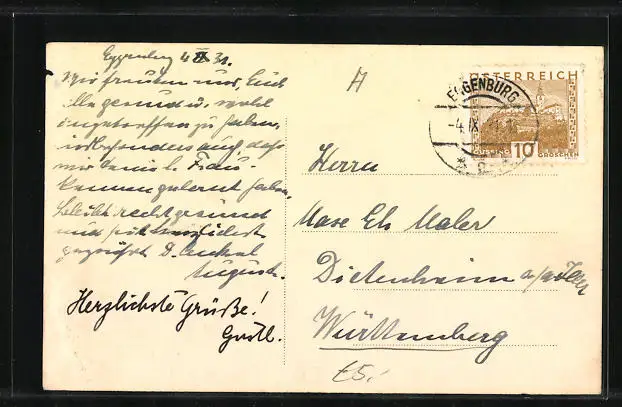 Eggenburg 4. IX 31.
Wir freuten uns, Euch
alle gesund u. wohl
angetroffen zu haben,
insbesonders auch, daß
wir Deine l. Frau
kennen gelernt haben,
bleibt recht gesund
und seid herzlichst
gegrüßt D. Onkel
August.
Herzlichste Grüße!
Gustl.
A
ÖSTERREICH
EGGENBURG
GÜSSING 10 GROSCHEN
Herrn
Maler
Dietenheim a/d Iller
Württemberg